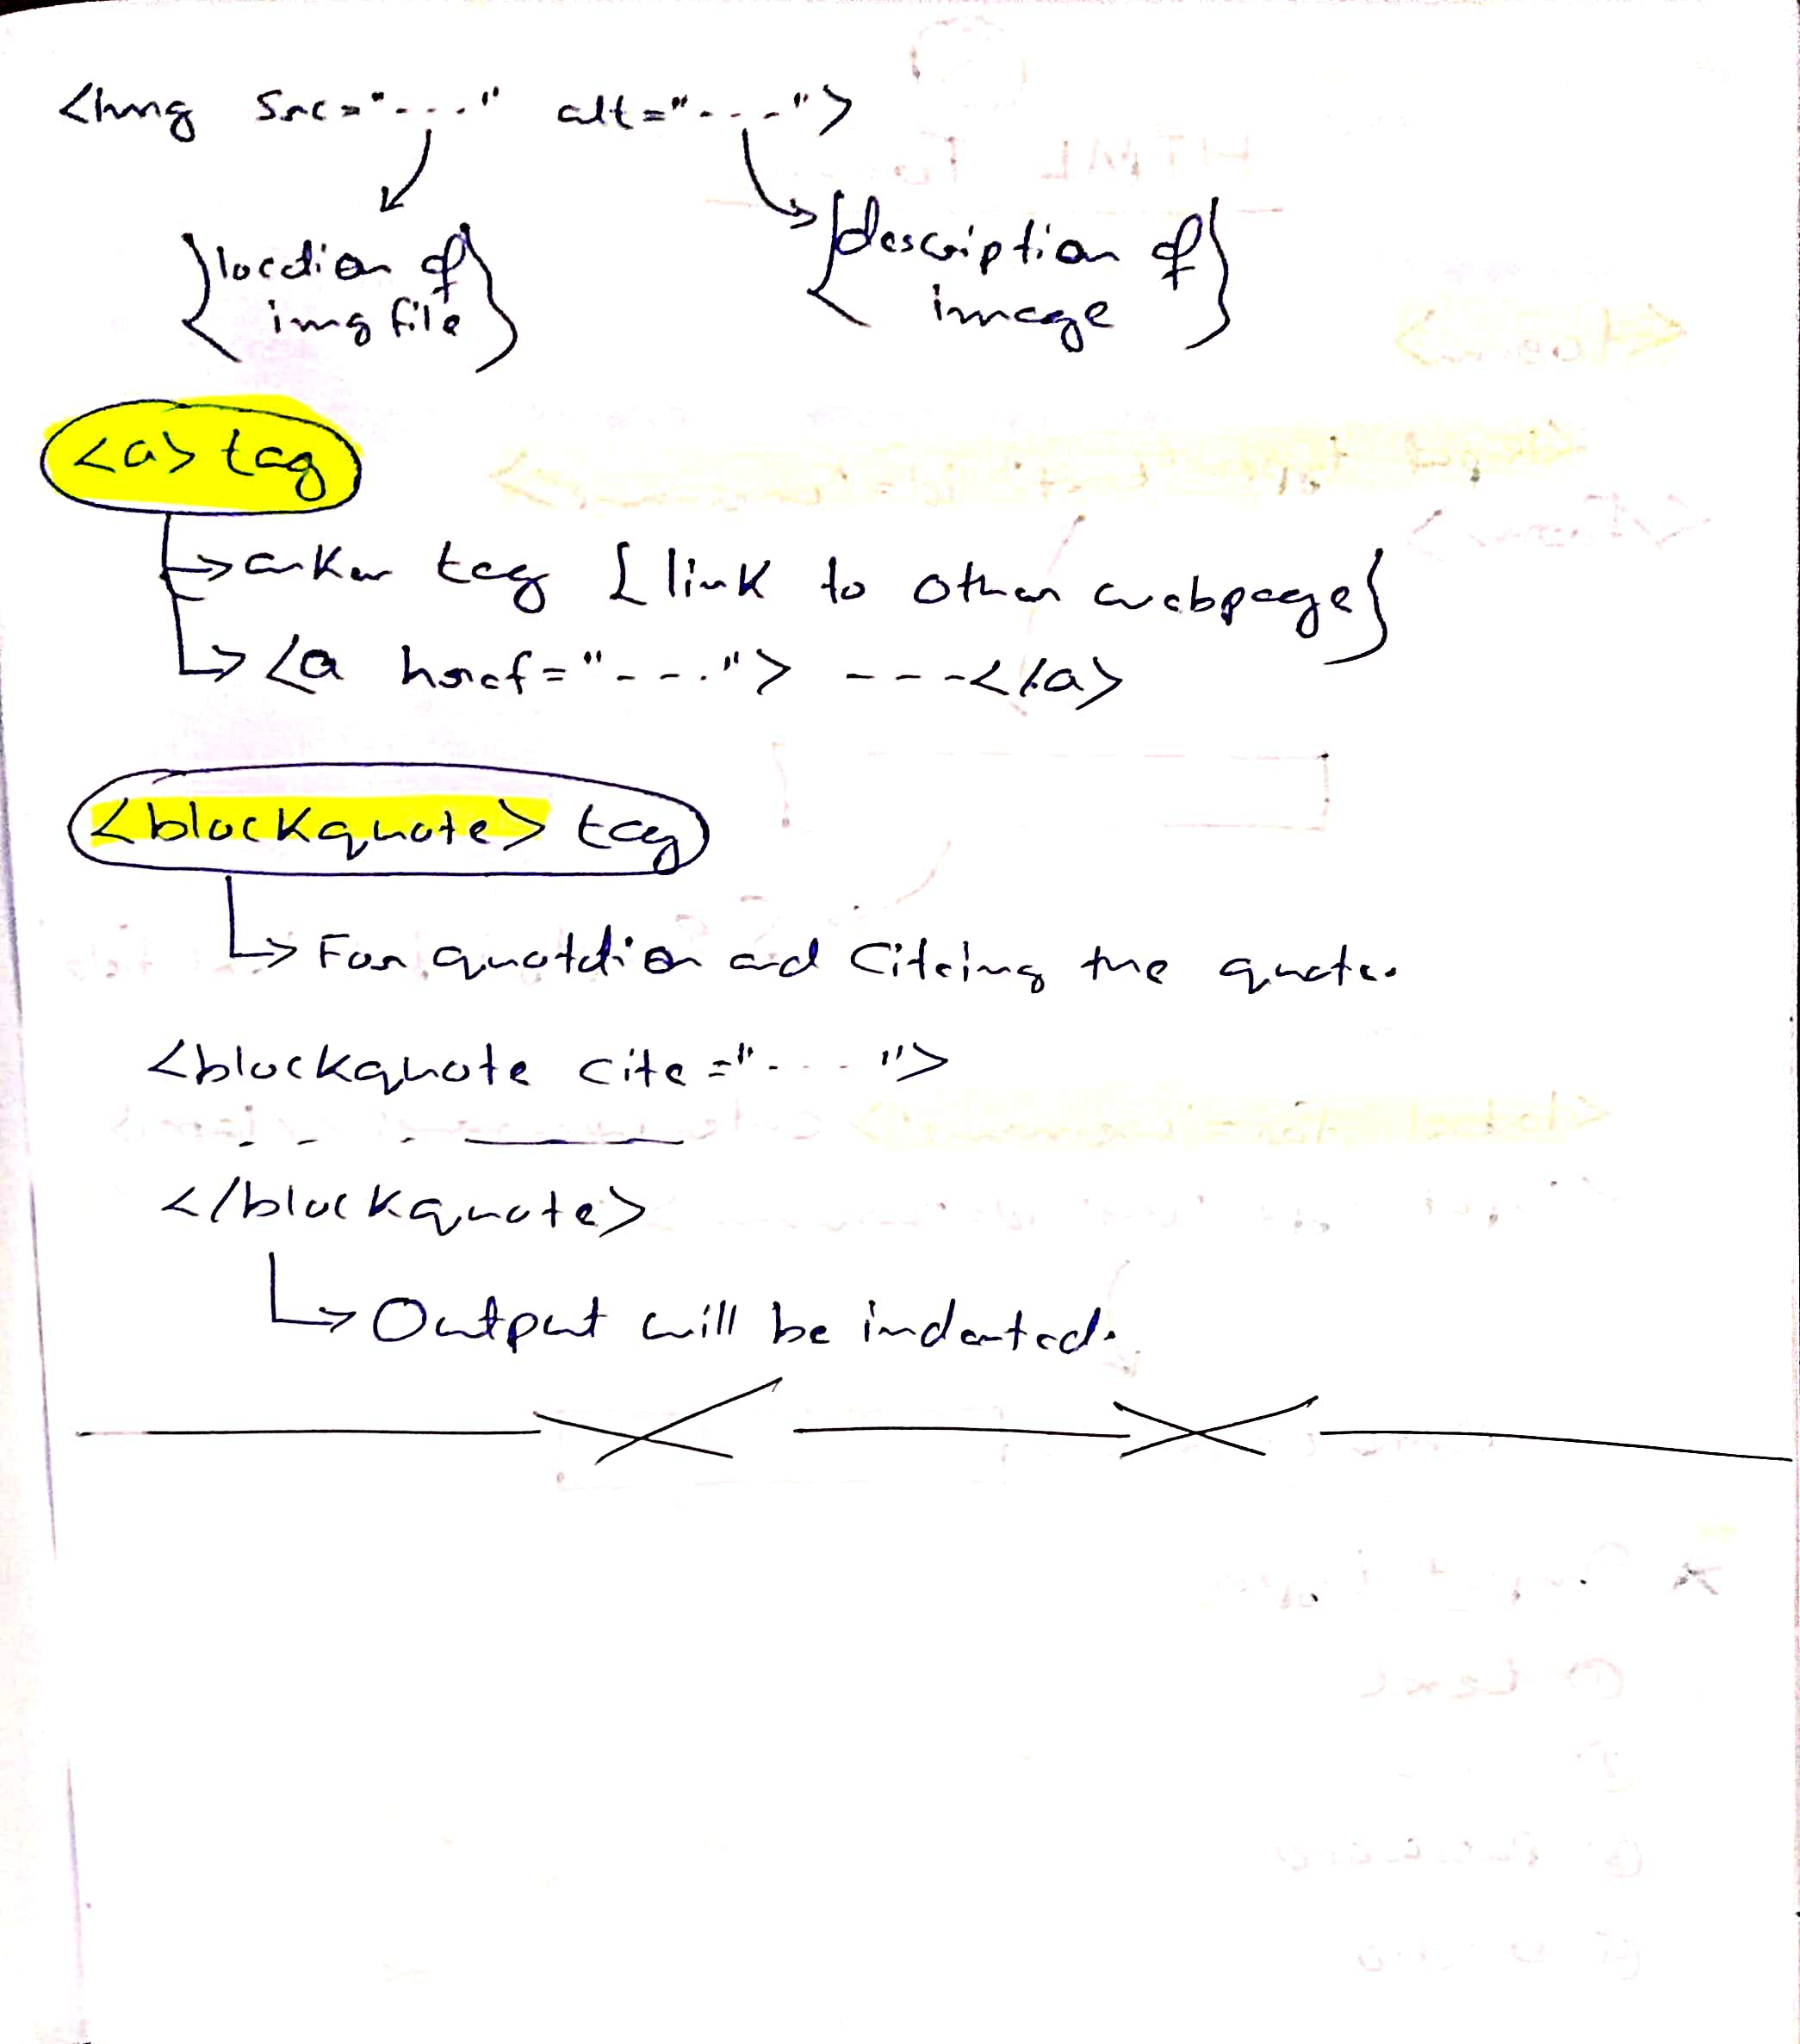 <img src="----" alt="----">
{location of
img file}
{description of
image}
<a> tag
anker tag {link to other webpage}
<a href="---"> ---</a>
<blockquote> tag
For quotation and Citeing the quote.
<blockquote cite="----">
</blockquote>
Output will be indented.